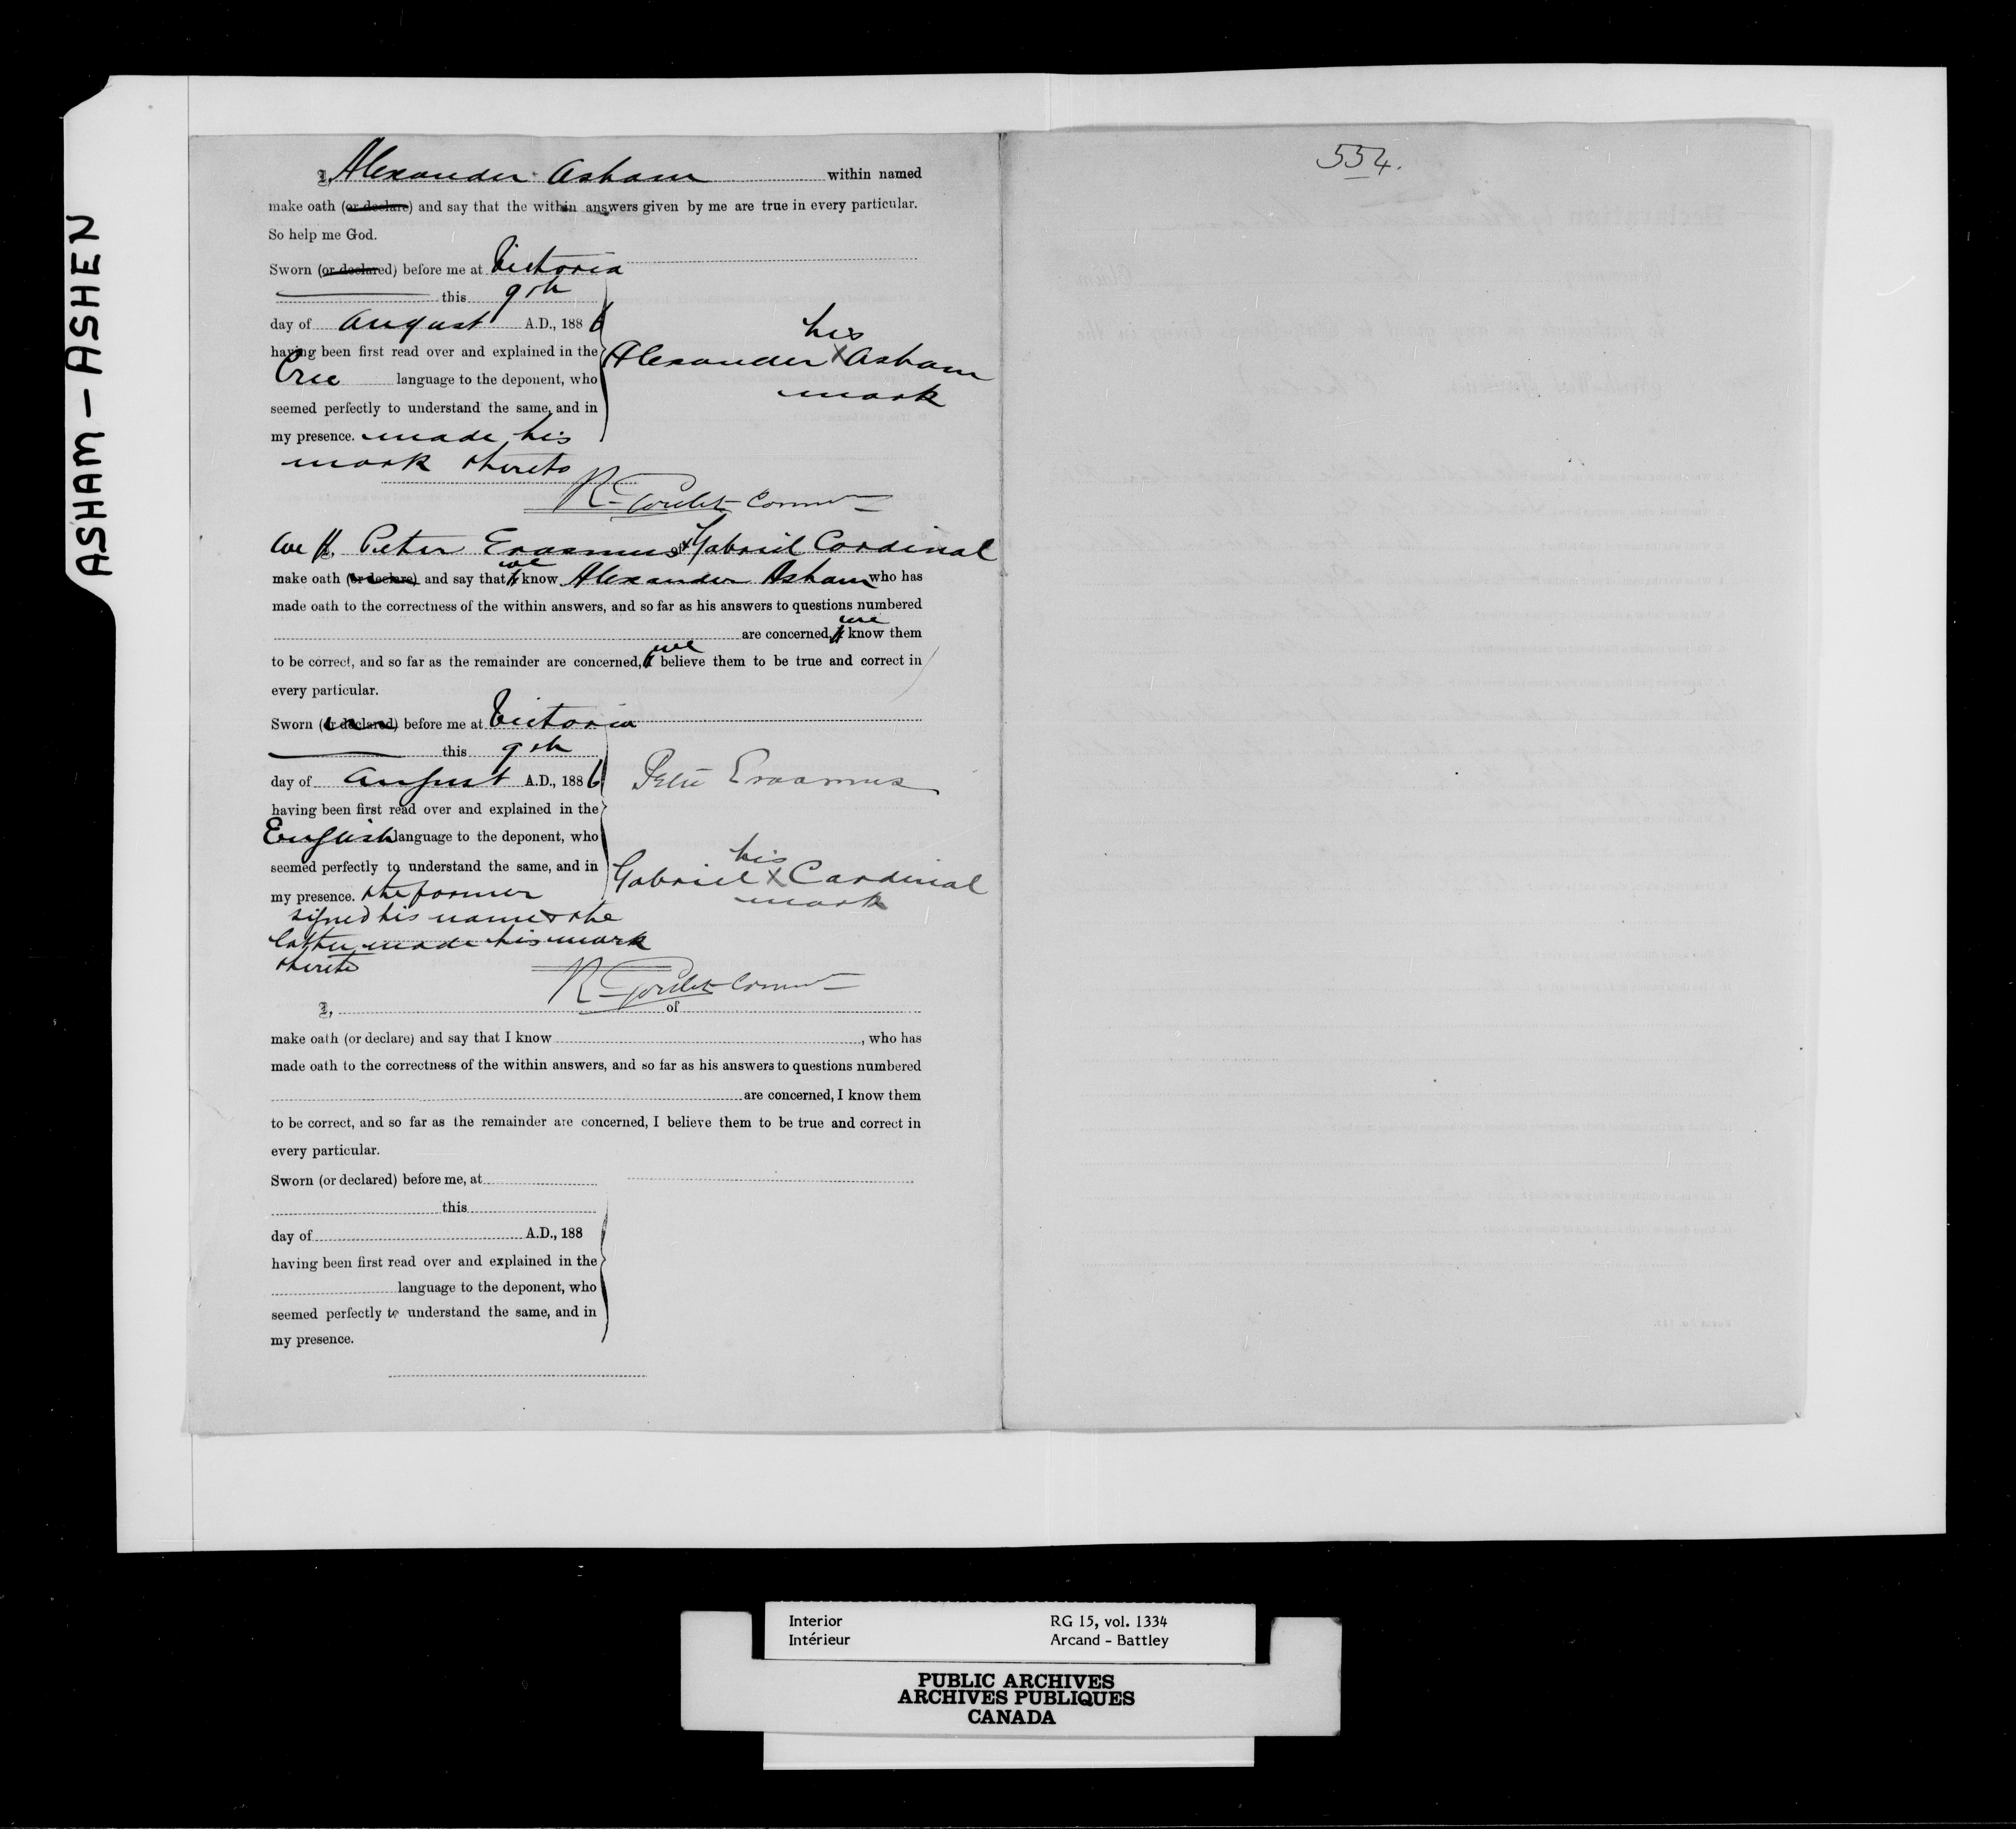 ASHAM - ASHEN
I, Alexander Asham within named
make oath (or declare) and say that the within answers given by me are true in every particular.
So help me God.
Sworn (or declared) before me at Victoria
this 9th
day of August A.D., 1886
having been first read over and explained in the
Cree language to the deponent, who
seemed perfectly to understand the same, and in
my presence. made his
mark thereto
his
Alexander X Asham
mark
R. Goulet Commr
We I, Peter Erasmus & Gabriel Cardinal
make oath (or declare) and say that I we know Alexander Asham who has
made oath to the correctness of the within answers, and so far as his answers to questions numbered
are concerned, I we know them
to be correct, and so far as the remainder are concerned, I we believe them to be true and correct in
every particular.
Sworn (or declared) before me at Victoria
this 9th
day of August A.D., 1886
having been first read over and explained in the
English language to the deponent, who
seemed perfectly to understand the same, and in
my presence. the former
signed his name & the
latter made his mark
thereto
Peter Erasmus
his
Gabriel X Cardinal
mark
R. Goulet Commr
I, of
make oath (or declare) and say that I know , who has
made oath to the correctness of the within answers, and so far as his answers to questions numbered
are concerned, I know them
to be correct, and so far as the remainder are concerned, I believe them to be true and correct in
every particular.
Sworn (or declared) before me, at
this
day of A.D., 188
having been first read over and explained in the
language to the deponent, who
seemed perfectly to understand the same, and in
my presence.
554.
Interior RG 15, vol. 1334
Intérieur Arcand - Battley
PUBLIC ARCHIVES
ARCHIVES PUBLIQUES
CANADA